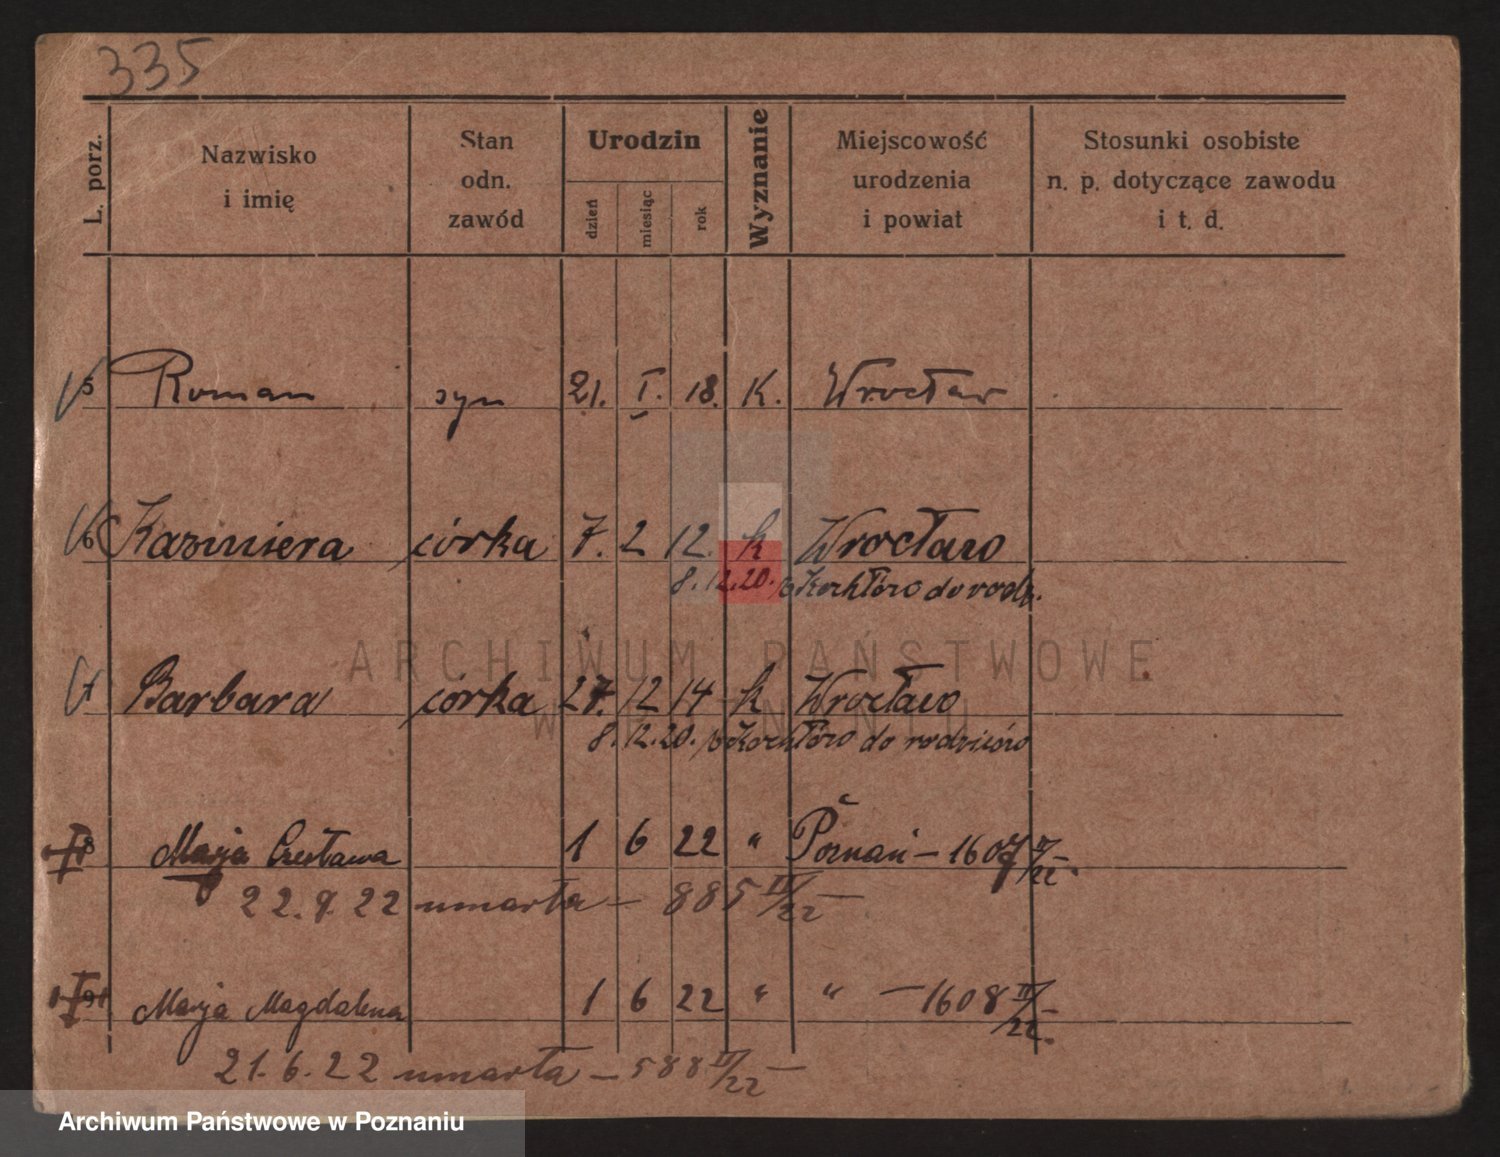 335
L. porz.
Nazwisko i imię
Stan odn. zawód
Urodzin
dzień
miesiąc
rok
Wyznanie
Miejscowość urodzenia i powiat
Stosunki osobiste n. p. dotyczące zawodu i t. d.
5 Roman syn 21. I. 18. K. Wrocław
6 Kazimiera córka 7. 2 12. k Wrocław
8.12.20. z Kochłów do rodz.
7 Barbara córka 27. 12 14 k Wrocław
8.12.20. z Kochłów do rodziców
8 Marja Czesława 1 6 22 " Poznań - 1607 II/22.
22.9.22 umarła - 885 II/22 -
9 Marja Magdalena 1 6 22 " " - 1608 II/22.
21.6.22 umarła - 588 II/22 -
ARCHIWUM PAŃSTWOWE
W POZNANIU
Archiwum Państwowe w Poznaniu